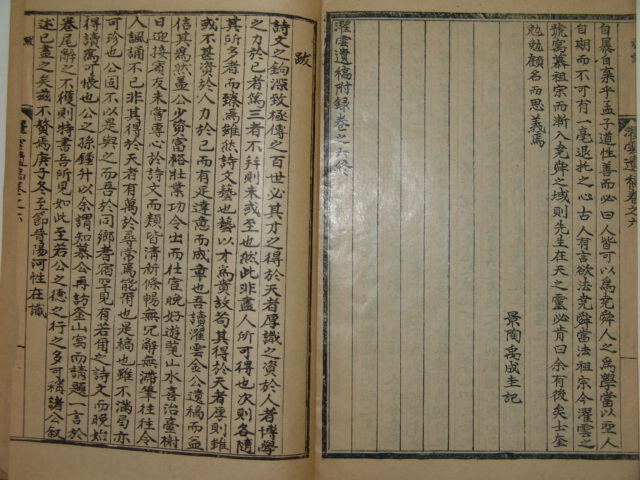 自暴自棄乎孟子道性善而必曰人皆可以爲堯舜人之爲學當以聖人
自期而不可有一毫退托之心古人有言欲法堯舜當法祖宗今濯雲之
號寓慕祖宗而漸入堯舜之域則先生在天之靈必肯曰余有後矣士奎
勉勉顧名而思義焉
景陶禹成圭記
濯雲遺稿附錄卷之六終
濯雲遺稿卷之六
跋
詩文之鉤深致極傳之百世必其才之得於天者厚識之資於人者博學
之力於己者篤三者不幷則未或至也然此非盡人所可得也次則各隨
其所多者而臻焉雖然詩文藝也藝以才爲貴故苟其得於天者厚則雖
或不甚資於人力於己而有足達意而成章也吾讀濯雲金公遺稿而益
信其爲然盖公少資富裕壯業功令出而仕宦晩好遊覽山水喜治臺榭
日迎接賓友未嘗專心於詩文而類皆淸新條暢無冗辭無滯筆往往令
人諷誦不已非其得於天者有萬於尋常焉能爾也是稿也雖不滿局亦
可珍也公固不以是與之而吾於同鄕耆宿罕見有若爾之詩文而晩始
得讀焉可悵也公之孫鍾升以余謂知慕公再訪釜山寓而請題一言於
卷尾辭之不獲則特書吾所見如此至若公之德之行之多可稱諸公叙
述已盡之矣玆不贅焉庚子冬至節晉陽河性在識
濯雲遺稿卷之六